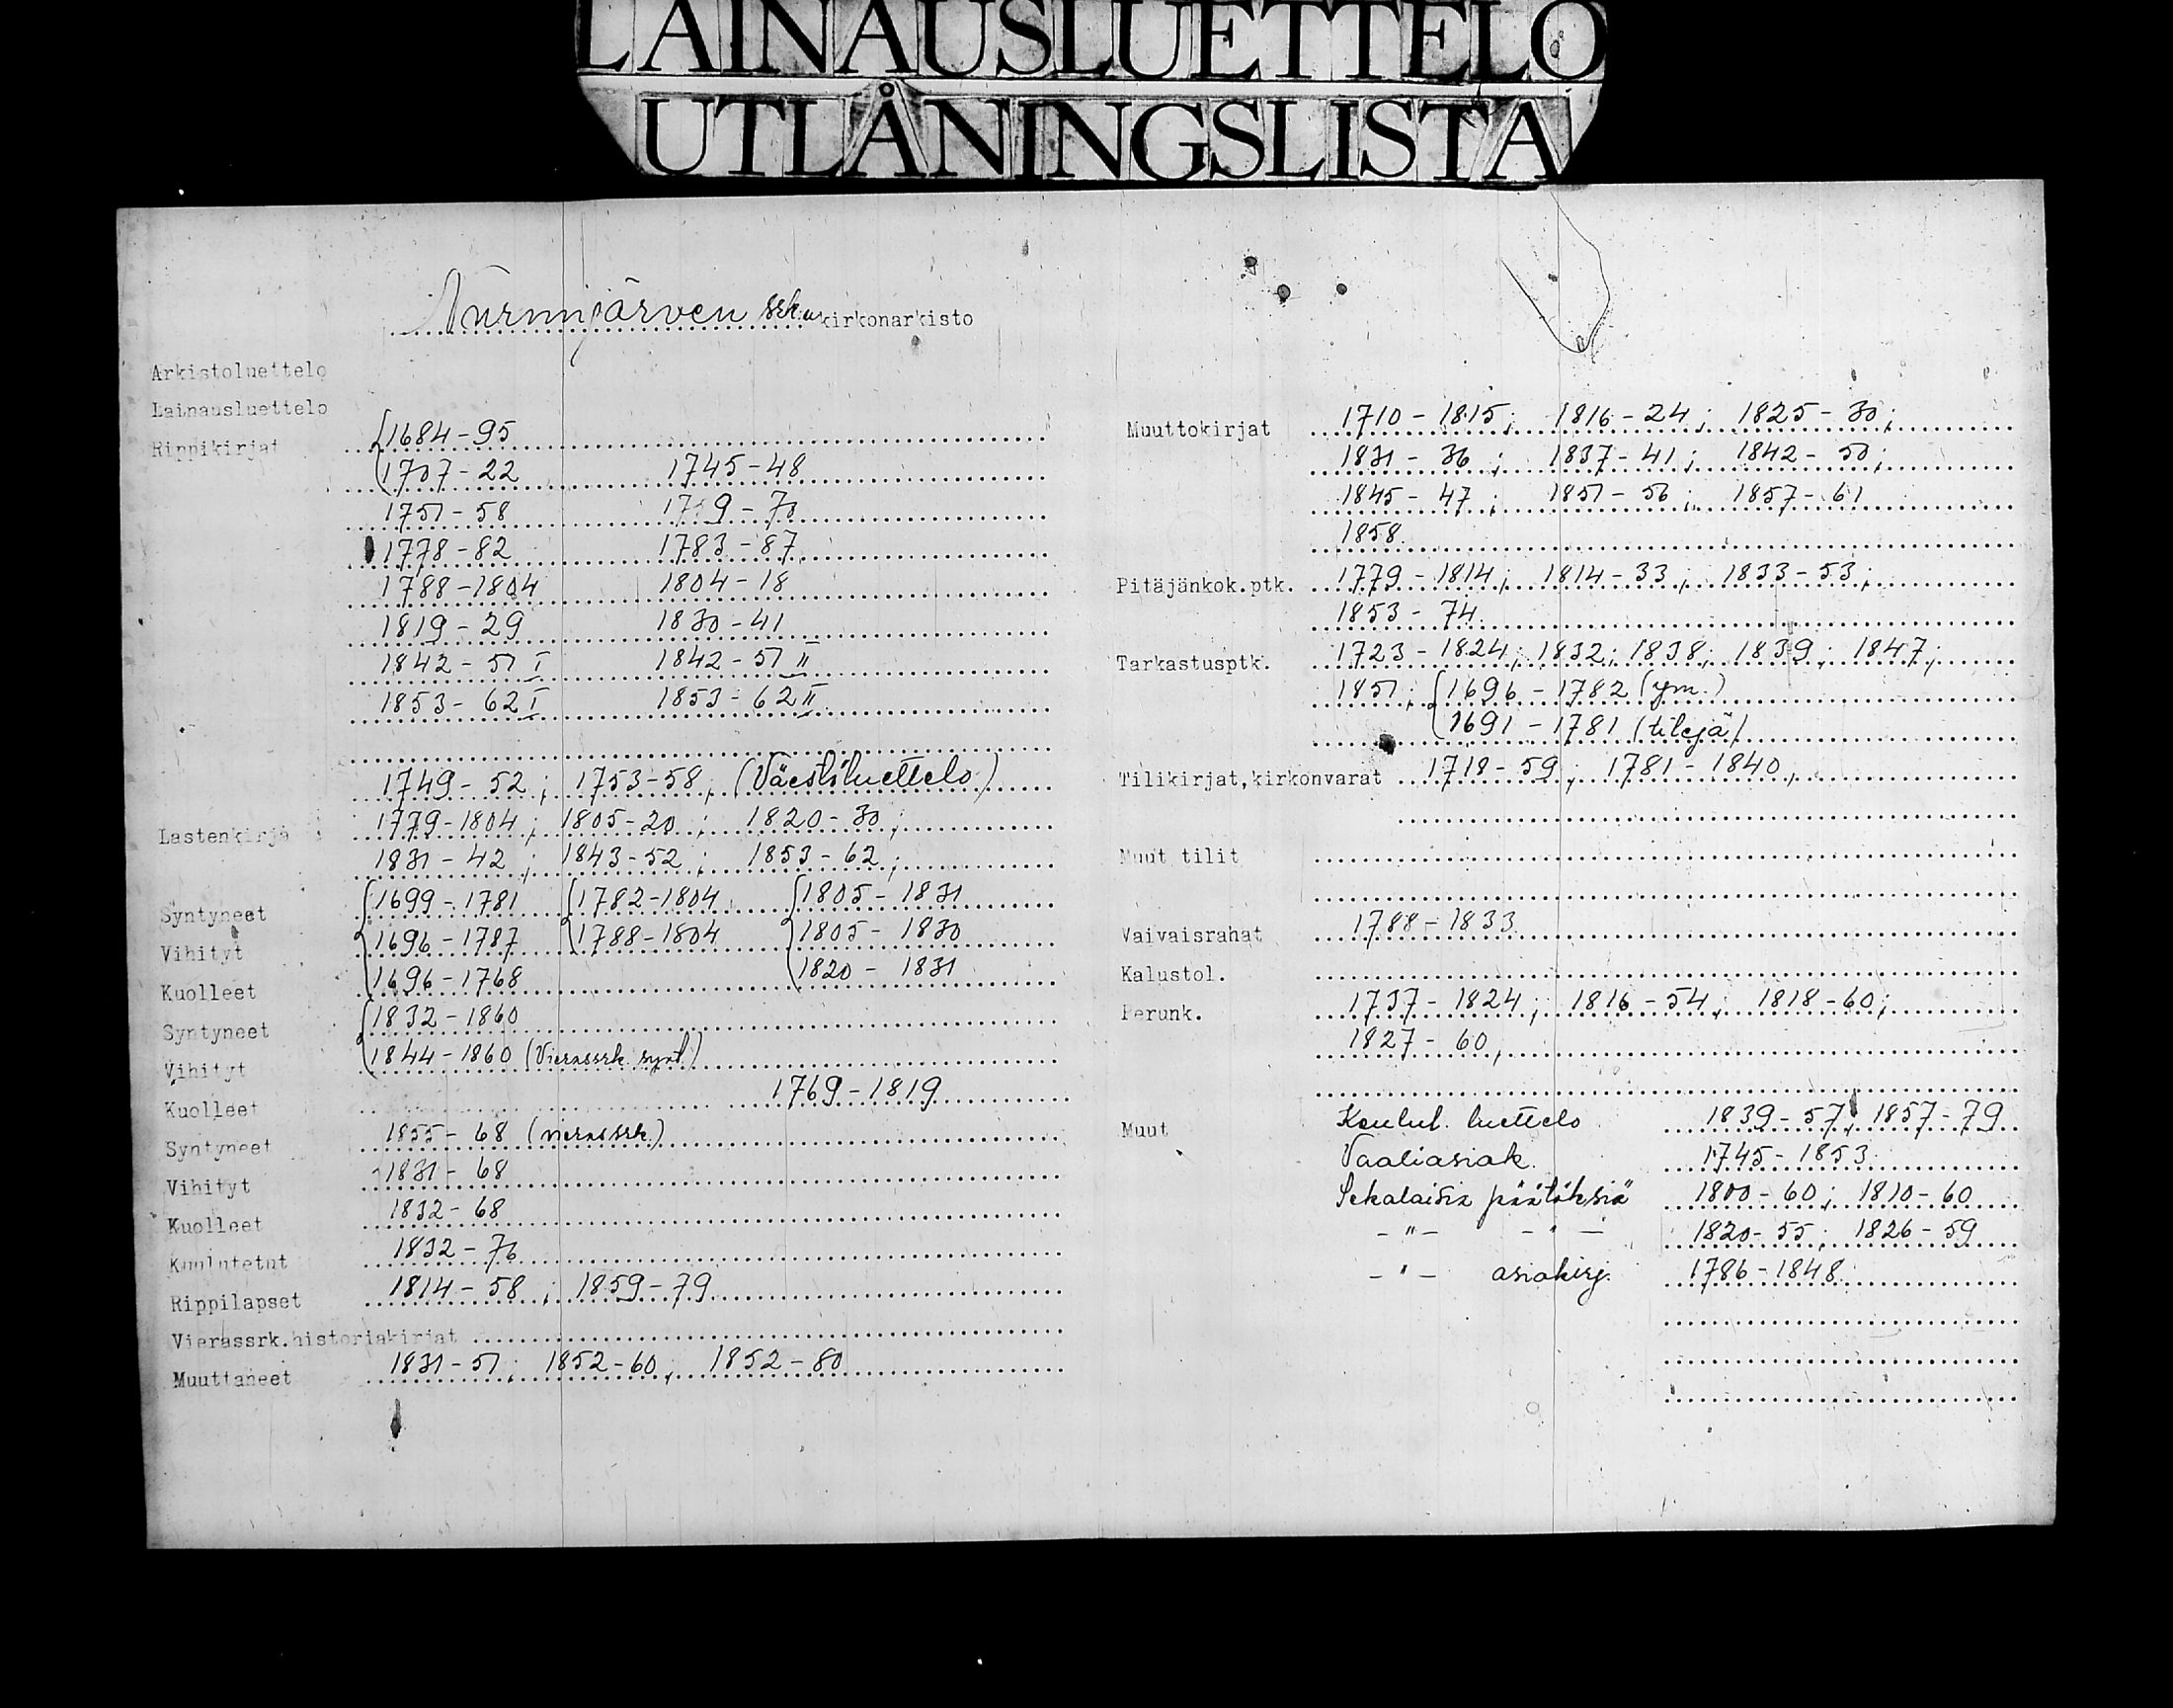 LAINAUSLUETTELO
UTLÅNINGSLISTA
Nurmijärven srk:n kirkonarkisto
Arkistoluettelo
Lainausluettelo
Rippikirjat 1684-95
1707-22 1745-48
1751-58 1759-70
1778-82 1783-87
1788-1804 1804-18
1819-29 1830-41
1842-51 I 1842-51 II
1853-62 I 1853-62 II
1749-52; 1753-58; (Väestöluettelo)
Lastenkirja 1779-1804; 1805-20; 1820-30;
1831-42; 1843-52; 1853-62;
Syntyneet 1699-1781 1782-1804 1805-1831
Vihityt 1696-1787 1788-1804 1805-1830
Kuolleet 1696-1768 1820-1831
Syntyneet 1832-1860
Vihityt 1844-1860 (Vierassrk. synt.)
Kuolleet 1769-1819
Syntyneet 1855-68 (vierassrk.)
Vihityt 1831-68
Kuolleet 1832-68
Kuulutetut 1832-76
Rippilapset 1814-58; 1859-79
Vierassrk.historiakirjat
Muuttaneet 1831-51; 1852-60; 1852-80
Muuttokirjat 1710-1815; 1816-24; 1825-30;
1831-36; 1837-41; 1842-50;
1845-47; 1851-56; 1857-61
1858
Pitäjänkok.ptk. 1779-1814; 1814-33; 1833-53;
1853-74
Tarkastusptk. 1723-1824; 1832; 1838; 1839; 1847;
1851; 1696-1782 (ym.)
1691-1781 (tilejä)
Tilikirjat,kirkonvarat 1718-59; 1781-1840,
Muut tilit
Vaivaisrahat 1788-1833
Kalustol.
Perunk. 1737-1824; 1816-54; 1818-60;
1827-60,
Muut Koulul. luettelo 1839-57; 1857-79
Vaaliasiak. 1745-1853
Sekalaisia päätöksiä 1800-60; 1810-60
-"- -"- 1820-55; 1826-59
-"- asiakirj. 1786-1848